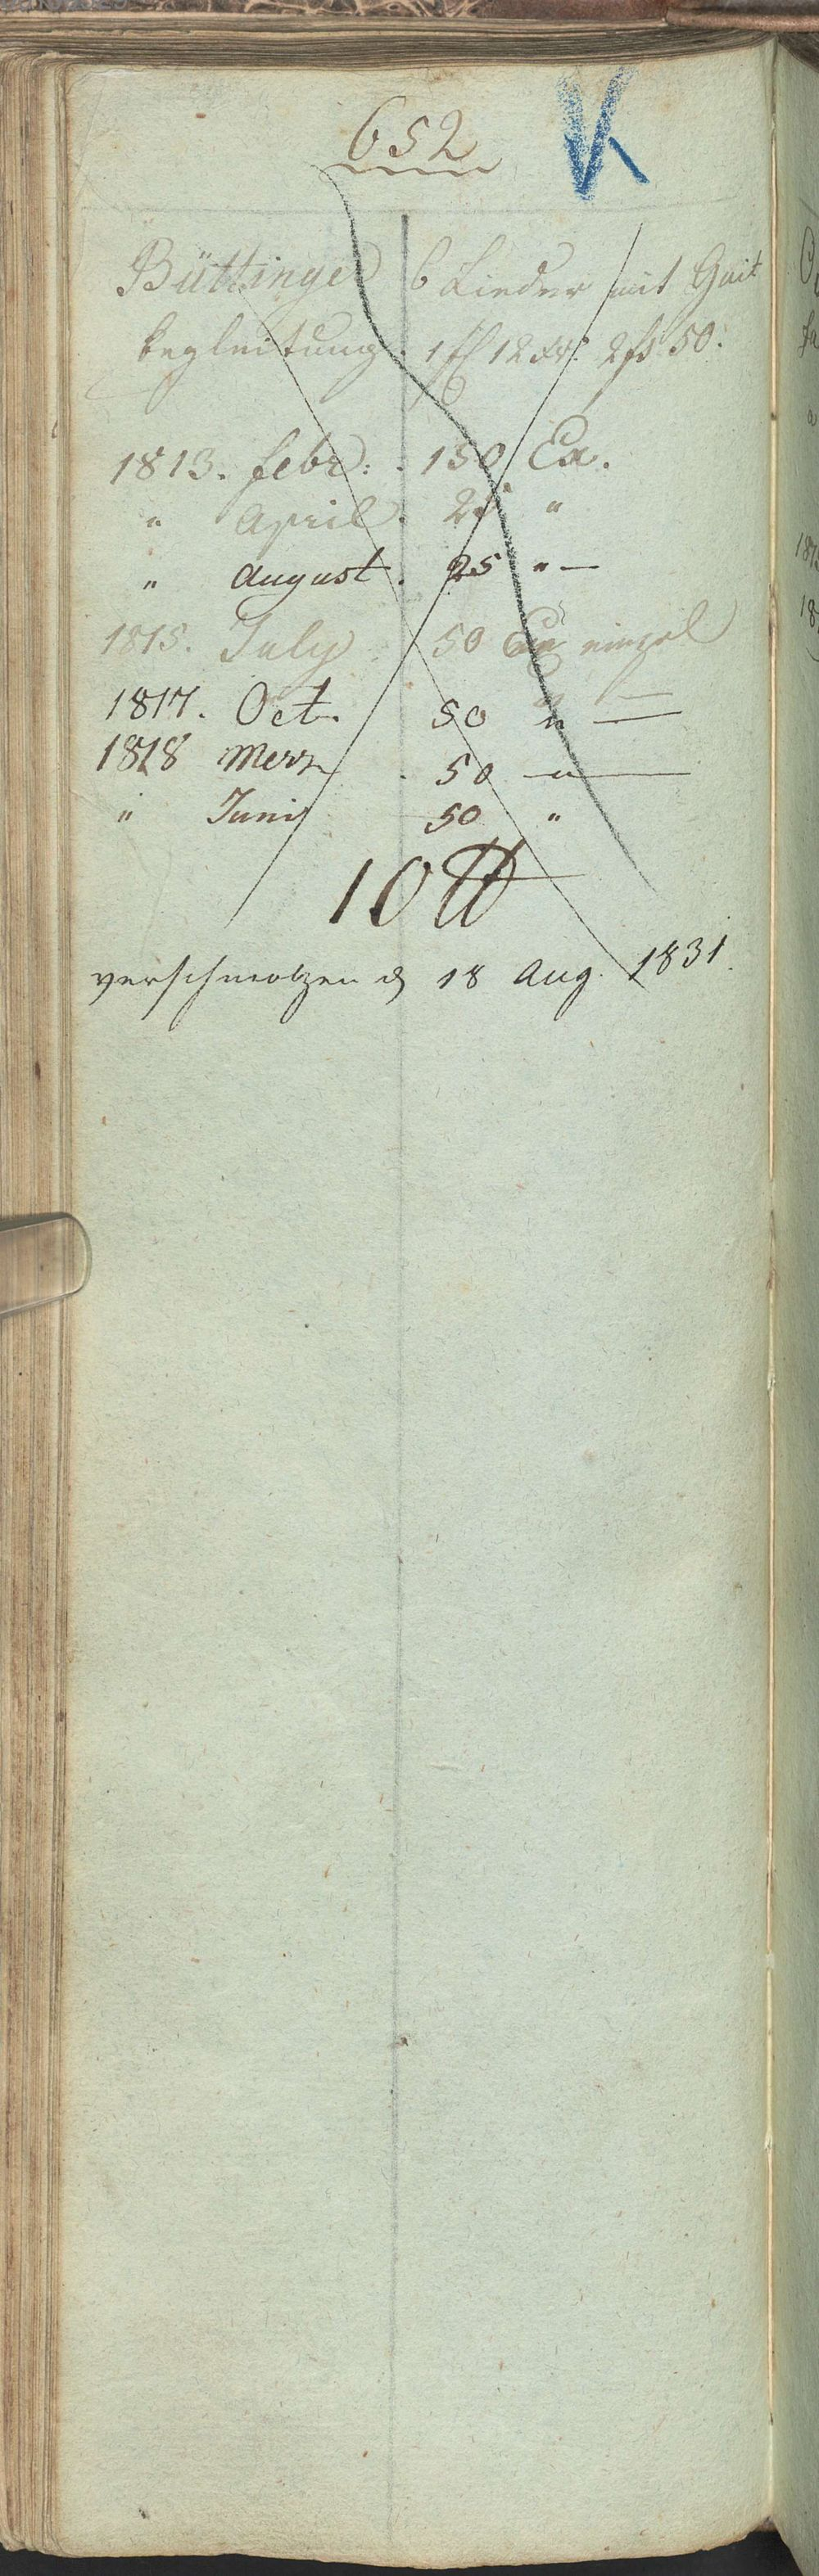 652 V
Büttinger 6 Lieder mit Guit
begleitung. 1 fl 12 xr. 2 fs 50.
1813. febr: . 150 Ex.
" April . 25 "
" August . 25 " —
1815. July 50 Ex einzel
1817. Oct. 50 " —
1818 Merz . 50 — " —
" Juni 50 "
10 ℔
verschmolzen d 18 Aug. 1831.